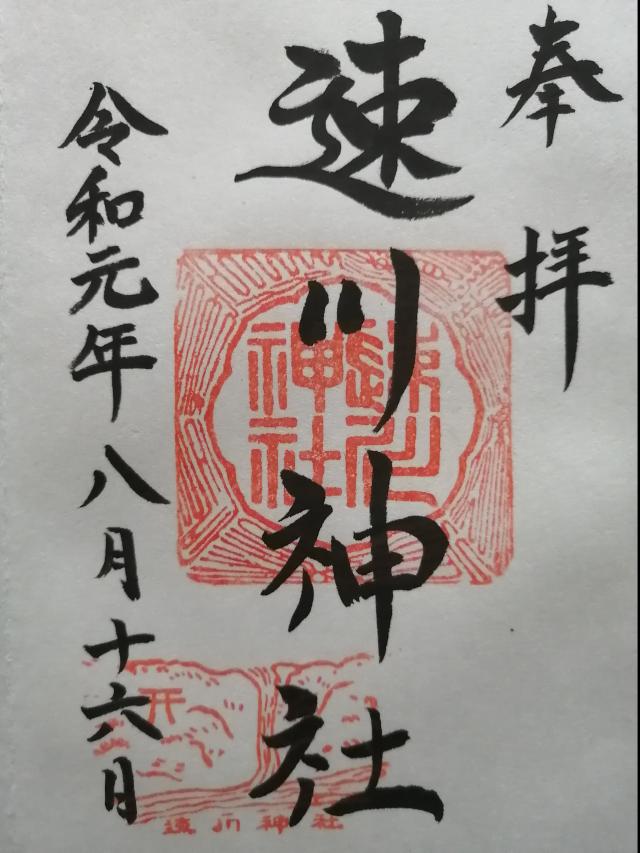 奉拝
速川神社
令和元年八月十六日
速川神社
速川神社